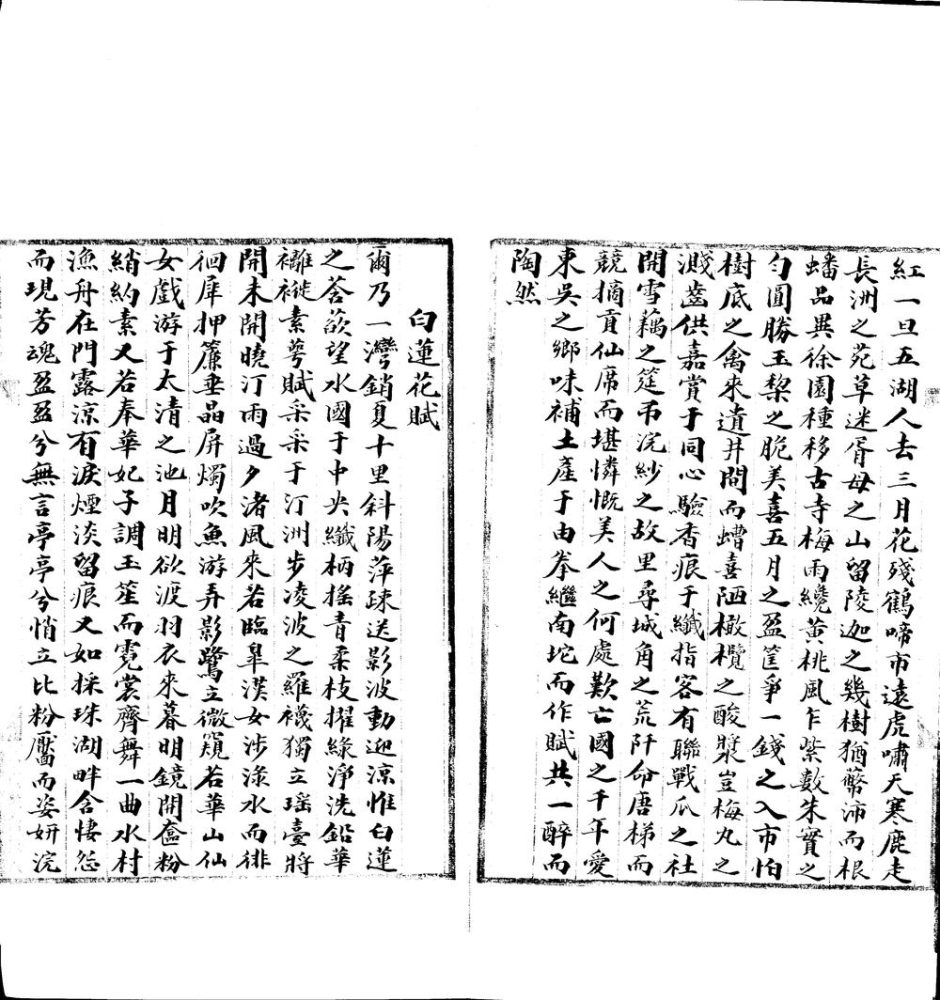 紅一旦五湖人去三月花殘鶴啼市遠虎嘯天寒鹿走
長洲之苑草迷胥母之山留陵迦之幾樹猶幣沛而根
蟠品異徐園種移古寺梅雨纔黃桃風乍紫數朱實之
勻圓勝玉棃之脆美喜五月之盈筐爭一錢之入市怕
樹底之禽來遺井閒而螬喜陋橄欖之酸漿豈梅丸之
濺齒供嘉賞于同心驗香痕于纖指客有聯戰瓜之社
開雪藕之筵弔浣紗之故里尋城角之荒阡命唐梯而
競摘貢仙席而堪憐慨美人之何處歎亡國之千年愛
東吳之鄉味補土產于由拳繼南坨而作賦共一醉而
陶然
白蓮花賦
爾乃一灣銷夏十里斜陽萍疎送影波動迎涼惟白蓮
之菩蔎望水國于中央纖柄搖青柔枝擢綠淨洗鉛華
襳褷素萼賦采采于汀洲步凌波之羅襪獨立瑤臺將
開未開曉汀雨過夕渚風來若臨皋漢女涉淥水而徘
徊犀押簾垂晶屏燭吹魚游弄影鷺立微窺若華山仙
女戲游于太清之池月明欲渡羽衣來暮明鏡開奩粉
綃約素又若奉華妃子調玉笙而霓裳齊舞一曲水村
漁舟在門露涼有淚煙淡留痕又如採珠湖畔含悽怨
而現芳魂盈盈兮無言亭亭兮悄立比粉靨而姿妍浣